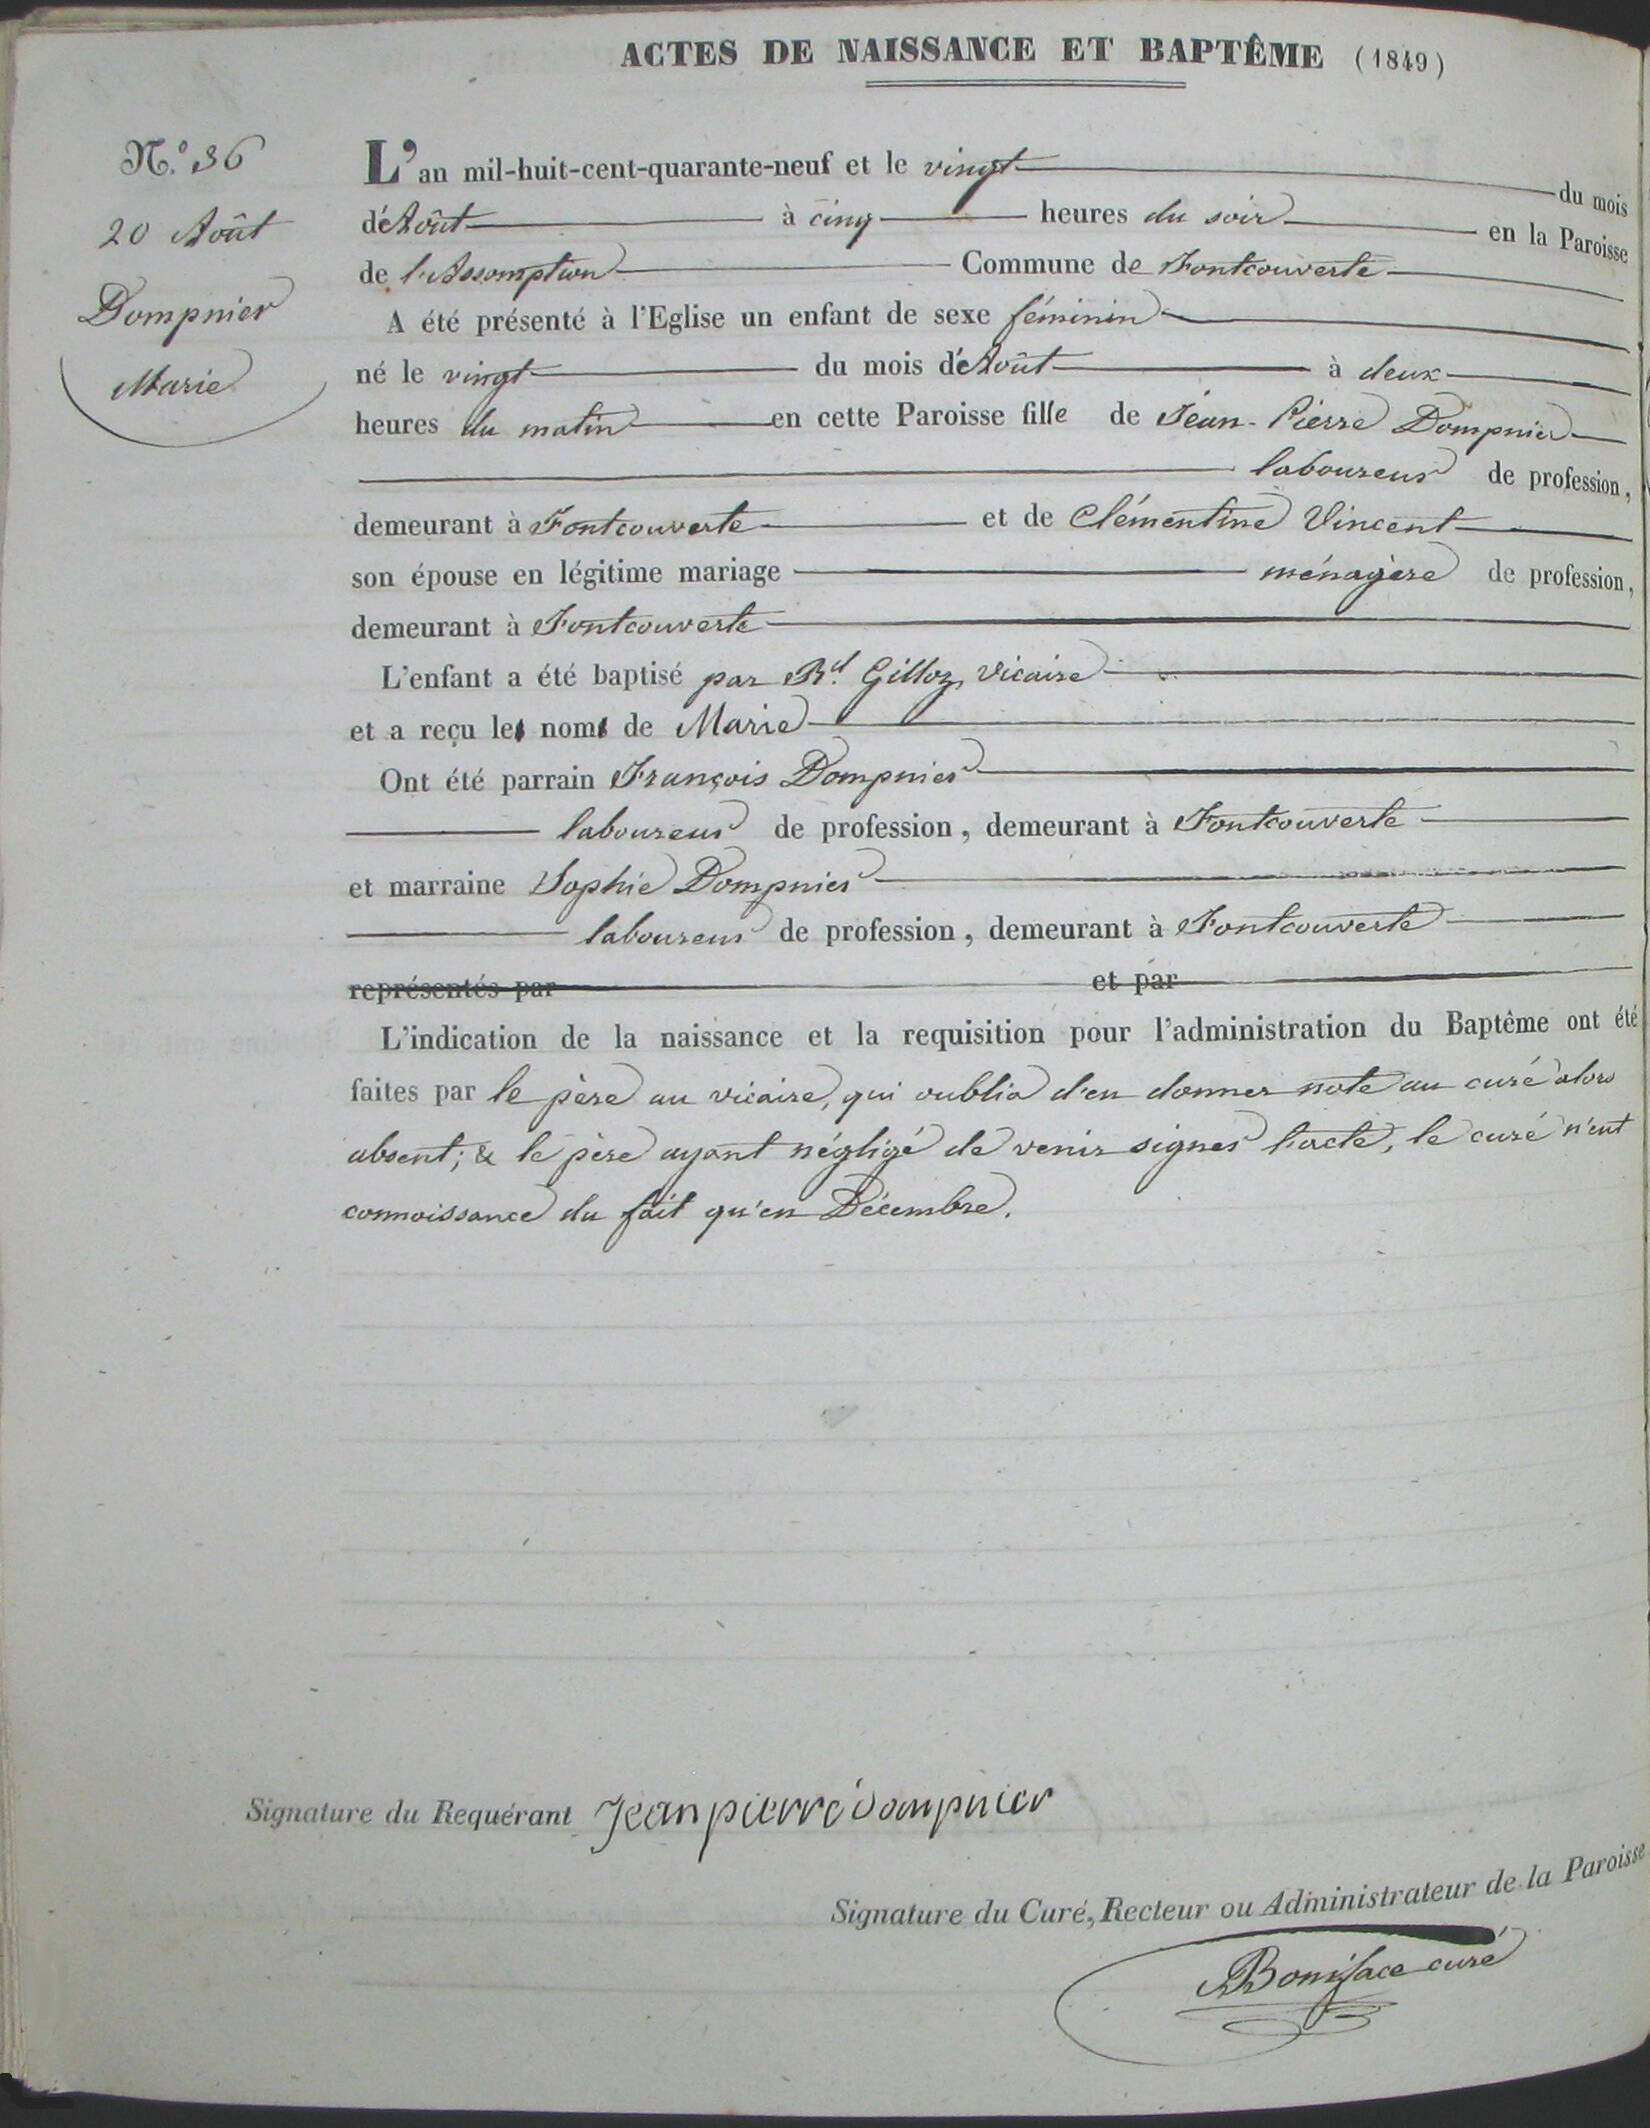 ACTES DE NAISSANCE ET BAPTÊME (1849)
N.° 36
20 Août
Dompnier
Marie
L'an mil-huit-cent-quarante-neuf et le vingt du mois
d'Août à cinq heures du soir en la Paroisse
de l'Assomption Commune de Fontcouverte
A été présenté à l'Eglise un enfant de sexe féminin
né le vingt du mois d'Août à deux
heures du matin en cette Paroisse fille de Jean-Pierre Dompnier
laboureur de profession,
demeurant à Fontcouverte et de Clémentine Vincent
son épouse en légitime mariage ménagère de profession,
demeurant à Fontcouverte
L'enfant a été baptisé par Rd. Gilloz, vicaire
et a reçu le nom de Marie
Ont été parrain François Dompnier
laboureur de profession, demeurant à Fontcouverte
et marraine Sophie Dompnier
laboureur de profession, demeurant à Fontcouverte
représentés par et par
L'indication de la naissance et la requisition pour l'administration du Baptême ont été
faites par le père au vicaire, qui oublia d'en donner note au curé alors
absent; & le père ayant négligé de venir signer l'acte, le curé n'eut
connoissance du fait qu'en Décembre.
Signature du Requérant Jean pierre dompnier
Signature du Curé, Recteur ou Administrateur de la Paroisse
Boniface curé